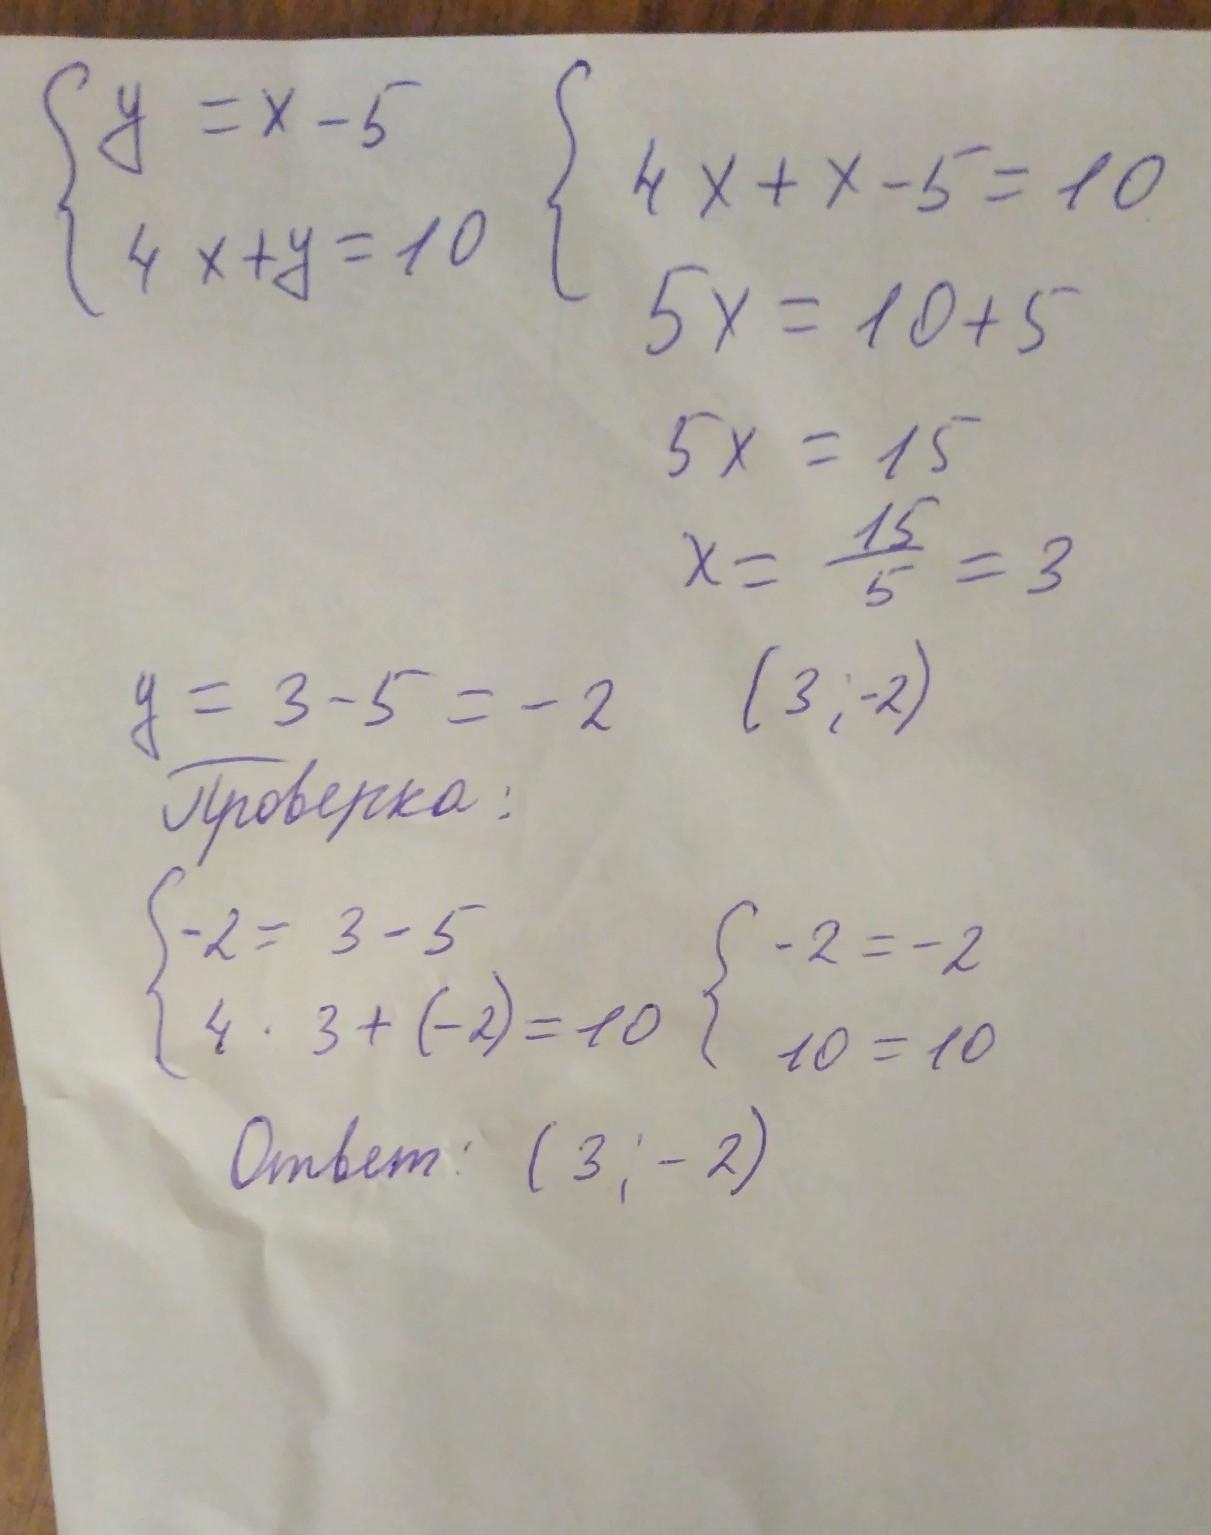 y = x - 5
4x + y = 10
4x + x - 5 = 10
5x = 10 + 5
5x = 15
x = 15/5 = 3
y = 3 - 5 = -2 (3; -2)
Проверка:
-2 = 3 - 5
4 · 3 + (-2) = 10
-2 = -2
10 = 10
Ответ: (3; -2)